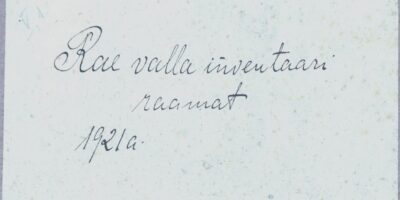 Rae valla inventaari
raamat
1921a.